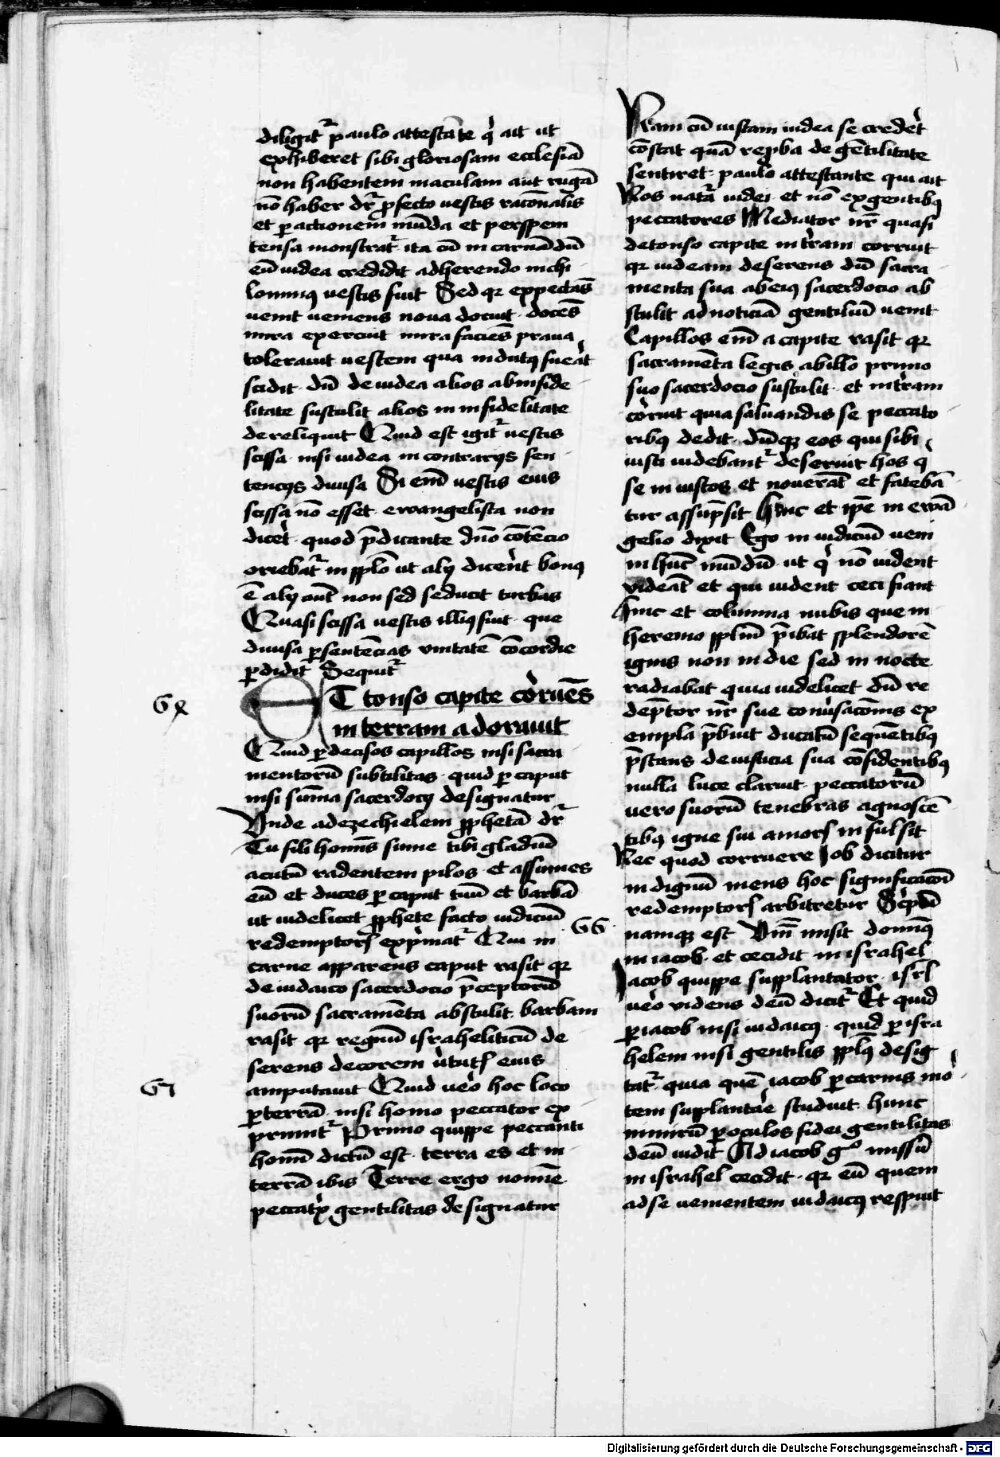 diligit᷑ paulo attestāte q̇ ait ut
exhiberet sibi gloriosam ecclesiā
non habentem maculam aut rugā
nō haber dr̄ ꝓfecto uestis racōnalis
et ꝑ actionem mūda et perspem
tensa monstrat᷑ ita cū in carnādū
eū iudea credidit adherendo nichi
lominꝰ uestis fuit Sed qꝛ expectās
uenit ueniens noua docuit docēs
mira exercuit mira faciēs praua
tolerauit uestem qua indutꝰ fuerat
scidit dū de iudea alios ab infide-
litate sustulit alios in infidelitate
dereliquit Quid est igit᷑ uestis
scissa nisi iudea in contrarijs sen-
tencijs diuisa Si em̄ uestis eius
scissa nō esset ewangelista non
dicet quod p̄dicante dn̄o cōtēcio
oriebat᷑ in pplo ut alij dicerēt bonꝰ
ē alij aut̄ non sed seducit turbas
Quasi scissa uestis illiꝰ fuit que
diuisa ꝑ sentēcias vnitatē cōcordie
ꝑdidit᷑ Sequit᷑
ET tonso capite corruēs
in terram adorauit
Quid ꝑ decisos capillos nisi sacra
mentorū subtilitas quid ꝑ caput
nisi sūma sacerdocij designatur
Vnde ad ezechielem ꝓphetā dr̄
Tu fili homīs sume tibi gladiū
acutū radentem pilos et assumes
eū et duces ꝑ caput tuū et barbā
ut uidelicet ꝓphete facto iudiciū
redemptoris exp̄mat᷑ Qui in
carne apparens caput rasit qꝛ
de iudaico sacerdocio p̄ceptorū
suorū sacramēta abstulit barbam
rasit qꝛ regnū israheliticū de
serens decorem uirtutis eius
amputauit Quid uero hoc loco
ꝑ terrā nisi homo peccator ex
primit᷑ Primo quippe peccanti
homī dictū est terra es et in
terrā ibis Terre ergo nomīe
peccatrix gentilitas designatur
Nam cū iustam iudea se crederet
cōstat quā reproba de gētilitate
sentiret paulo attestante qui ait
Nos natura iudei et nō ex gentibꝰ
peccatores Mediator nr̄ quasi
detonso capite in terram corruit
qꝛ iudeam deserens dū sacra
menta sua ab eiꝰ sacerdocio ab
stulit ad noticiā gentiliū uenit
Capillos em̄ a capite rasit qꝛ
sacramēta legis ab illo primo
suo sacerdocio sustulit et in terram
corruit quia saluandis se peccato
ribꝰ dedit dūqꝫ eos qui sibi
iusti uidebant᷑ deseruit hos q̇
se iniustos et nouerāt et fatebā
tur assūpsit Hinc et ip̄e in ewā
gelio dixit Ego in iudiciū ueni
in hūc mūdū ut q̇ nō uident
videāt et qui uident ceci fiant
Hinc et columna nubis que in
heremo pplm̄ p̄ibat splendorē
ignis non in die sed in nocte
radiabat quia uidelicet dū re
dēptor nr̄ sue conuersacōnis ex
empla p̄buit ducatū sequētibꝰ
p̄stans de iusticia sua cōfidentibꝰ
nulla luce claruit peccatorū
uero suorū tenebras agnoscē
tibꝰ igne sui amoris infulsit
Nec quod corruere Iob dicitur
indignū mens hoc significacōi
redemptoris arbitretur Scriptū
namqꝫ est Vm̄ misit dominꝰ
in iacob et cecidit in israhel
Jacob quippe supplantator isrl̄
uero videns deū dicit᷑ Et quid
ꝑ iacob nisi iudaicꝰ quid ꝑ isra
helem nisi gentilis pplꝰ desig
tat᷑ quia quē iacob ꝑ carnis mo
tem supplantare studuit hunc
nimirū ꝑ oculos fidei gentilitas
deū uidit Ad iacob gͦ missū
in israhel cecidit qꝛ eū quem
ad se uenientem iudaicꝰ respuit
66
67
Digitalisierung gefördert durch die Deutsche Forschungsgemeinschaft - DFG